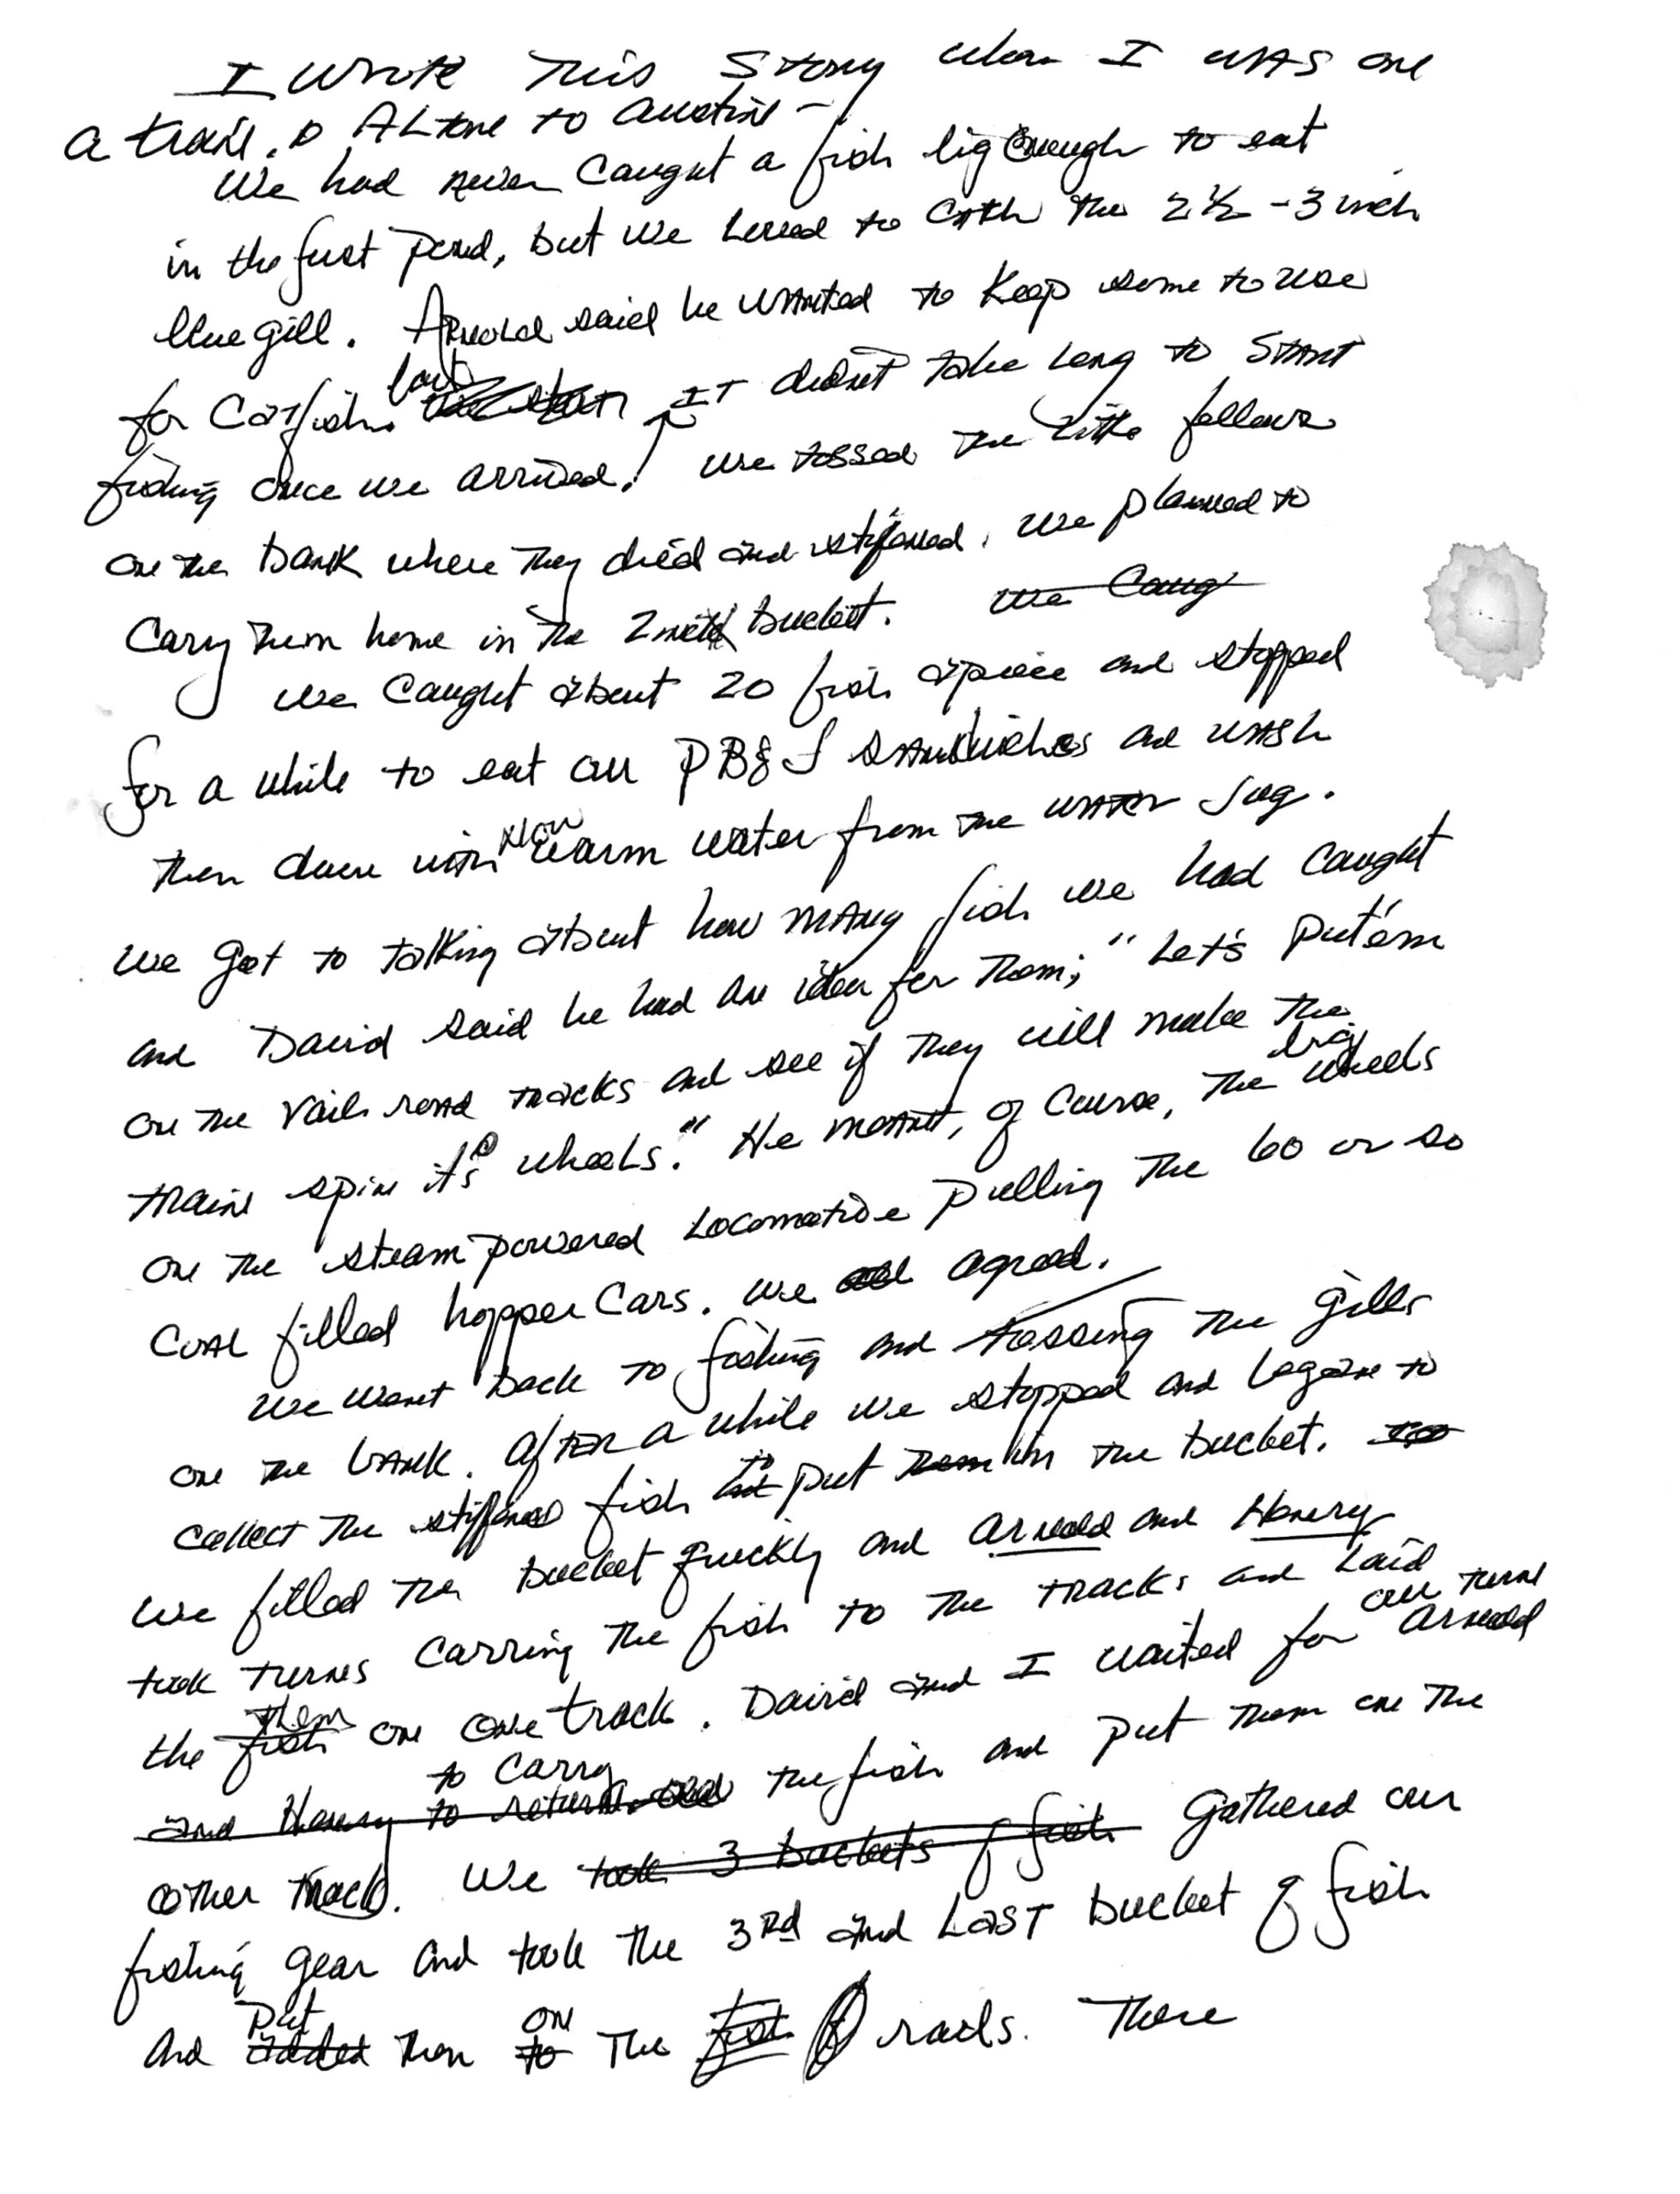 I wrote This Story when I was on
a train. Altone to Austin –
We had never caught a fish big enough to eat
in the first pond, but we loved to catch the 2 1/2 - 3 inch
blue gill. Arnold said he wanted to keep some to use
for Catfish bait. IT didn't take long to START
fishing once we arrived. We tossed the little fellows
on the bank where they dried and stiffened. We planned to
Carry them home in the bucket. We Caug
We Caught about 20 fish apiece and stopped
for a while to eat our PB&J sandwiches and wash
them down with Now warm water from the water Jug.
We got to talking about how many fish we had caught
and David said he had an idea for them; "Let's put'em
on the railroad tracks and see if they will make the
train spin it's wheels." He meant, of course, the big wheels
on the steam powered locomotive pulling the 60 or so
coal filled hopper cars. We all agreed.
We went back to fishing and tossing the gills
on the bank. After a while we stopped and began to
collect the stiffened fish to put them in the bucket.
We filled the bucket quickly and Arnold and Henery
took turns carring the fish to the tracks and laid
the fish them on one track. David and I waited for our turn Arnold
and Henery to return to carry the fish and put them on the
other track. We took 3 buckets of fish Gathered our
fishing gear and took the 3rd and Last bucket of fish
and added put them to on the first rails. There